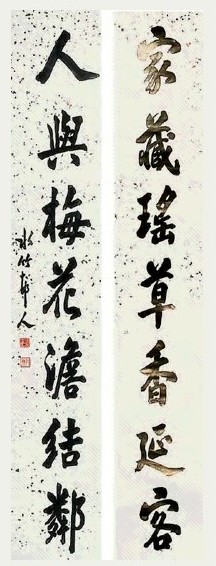 家藏瑤草香延客
人與梅花澹結鄰
水竹邨人